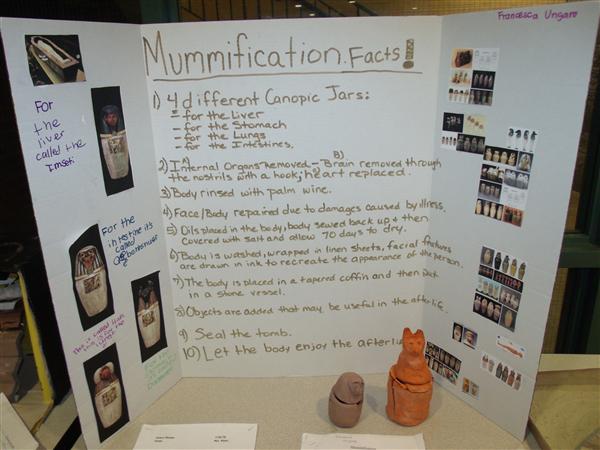 Francesca Ungaro
Mummification Facts!
1) 4 different Canopic Jars:
- for the Liver
- for the Stomach
- for the Lungs
- for the Intestines.
2) A) Internal Organs Removed - B) Brain removed through
the nostrils with a hook, heart replaced.
3) Body rinsed with palm wine.
4) Face/Body repaired due to damages caused by illness.
5) Oils placed in the body, body sewed back up + then
covered with salt and allow 70 days to dry.
6) Body is washed, wrapped in linen sheets, facial features
are drawn in ink to recreate the appearance of the person.
7) The body is placed in a tapered coffin and then put
in a stone vessel.
8) Objects are added that may be useful in the after life.
9) Seal the tomb.
10) Let the body enjoy the
For
the
liver
called the
Imseti
For the
intestine its
called